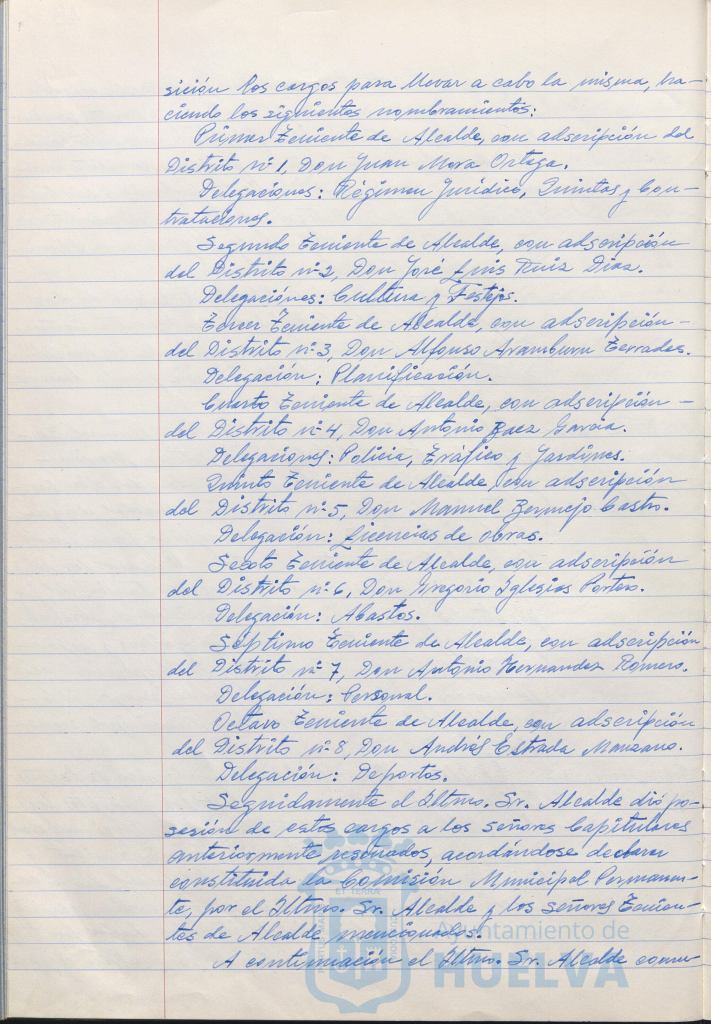 sición los cargos para llevar a cabo la misma, ha-
ciendo los siguientes nombramientos:
Primer Teniente de Alcalde, con adscripción del
Distrito nº 1, Don Juan Mora Ortega.
Delegaciones: Régimen Jurídico, Quintas y Con-
trataciones.
Segundo Teniente de Alcalde, con adscripción
del Distrito nº 2, Don José Luis Ruiz Díaz.
Delegaciónes: Cultura y Festejos.
Tercer Teniente de Alcalde, con adscripción-
del Distrito nº 3, Don Alfonso Aramburu Terrades.
Delegación: Planificación.
Cuarto Teniente de Alcalde, con adscripción-
del Distrito nº 4, Don Antonio Baez García.
Delegaciones: Policia, Tráfico y Jardines.
Quinto Teniente de Alcalde, con adscripción
del Distrito nº 5, Don Manuel Bermejo Castro.
Delegación: Licencias de obras.
Sexto Teniente de Alcalde, con adscripción
del Distrito nº 6, Don Gregorio Iglesias Portero.
Delegación: Abastos.
Séptimo Teniente de Alcalde, con adscripción
del Distrito nº 7, Don Antonio Hernandez Romero.
Delegación: Personal.
Octavo Teniente de Alcalde, con adscripción
del Distrito nº 8, Don Andrés Estrada Manzano.
Delegación: Deportes.
Seguidamente el Iltmo. Sr. Alcalde dió po-
sesión de estos cargos a los señores Capitulares
anteriormente reseñados, acordándose declarar
constituida la Comisión Municipal Permanen-
te, por el Iltmo. Sr. Alcalde y los señores Tenien-
tes de Alcalde mencionados.
Ayuntamiento de
A continuación el Iltmo. Sr. Alcalde comu-
HUELVA